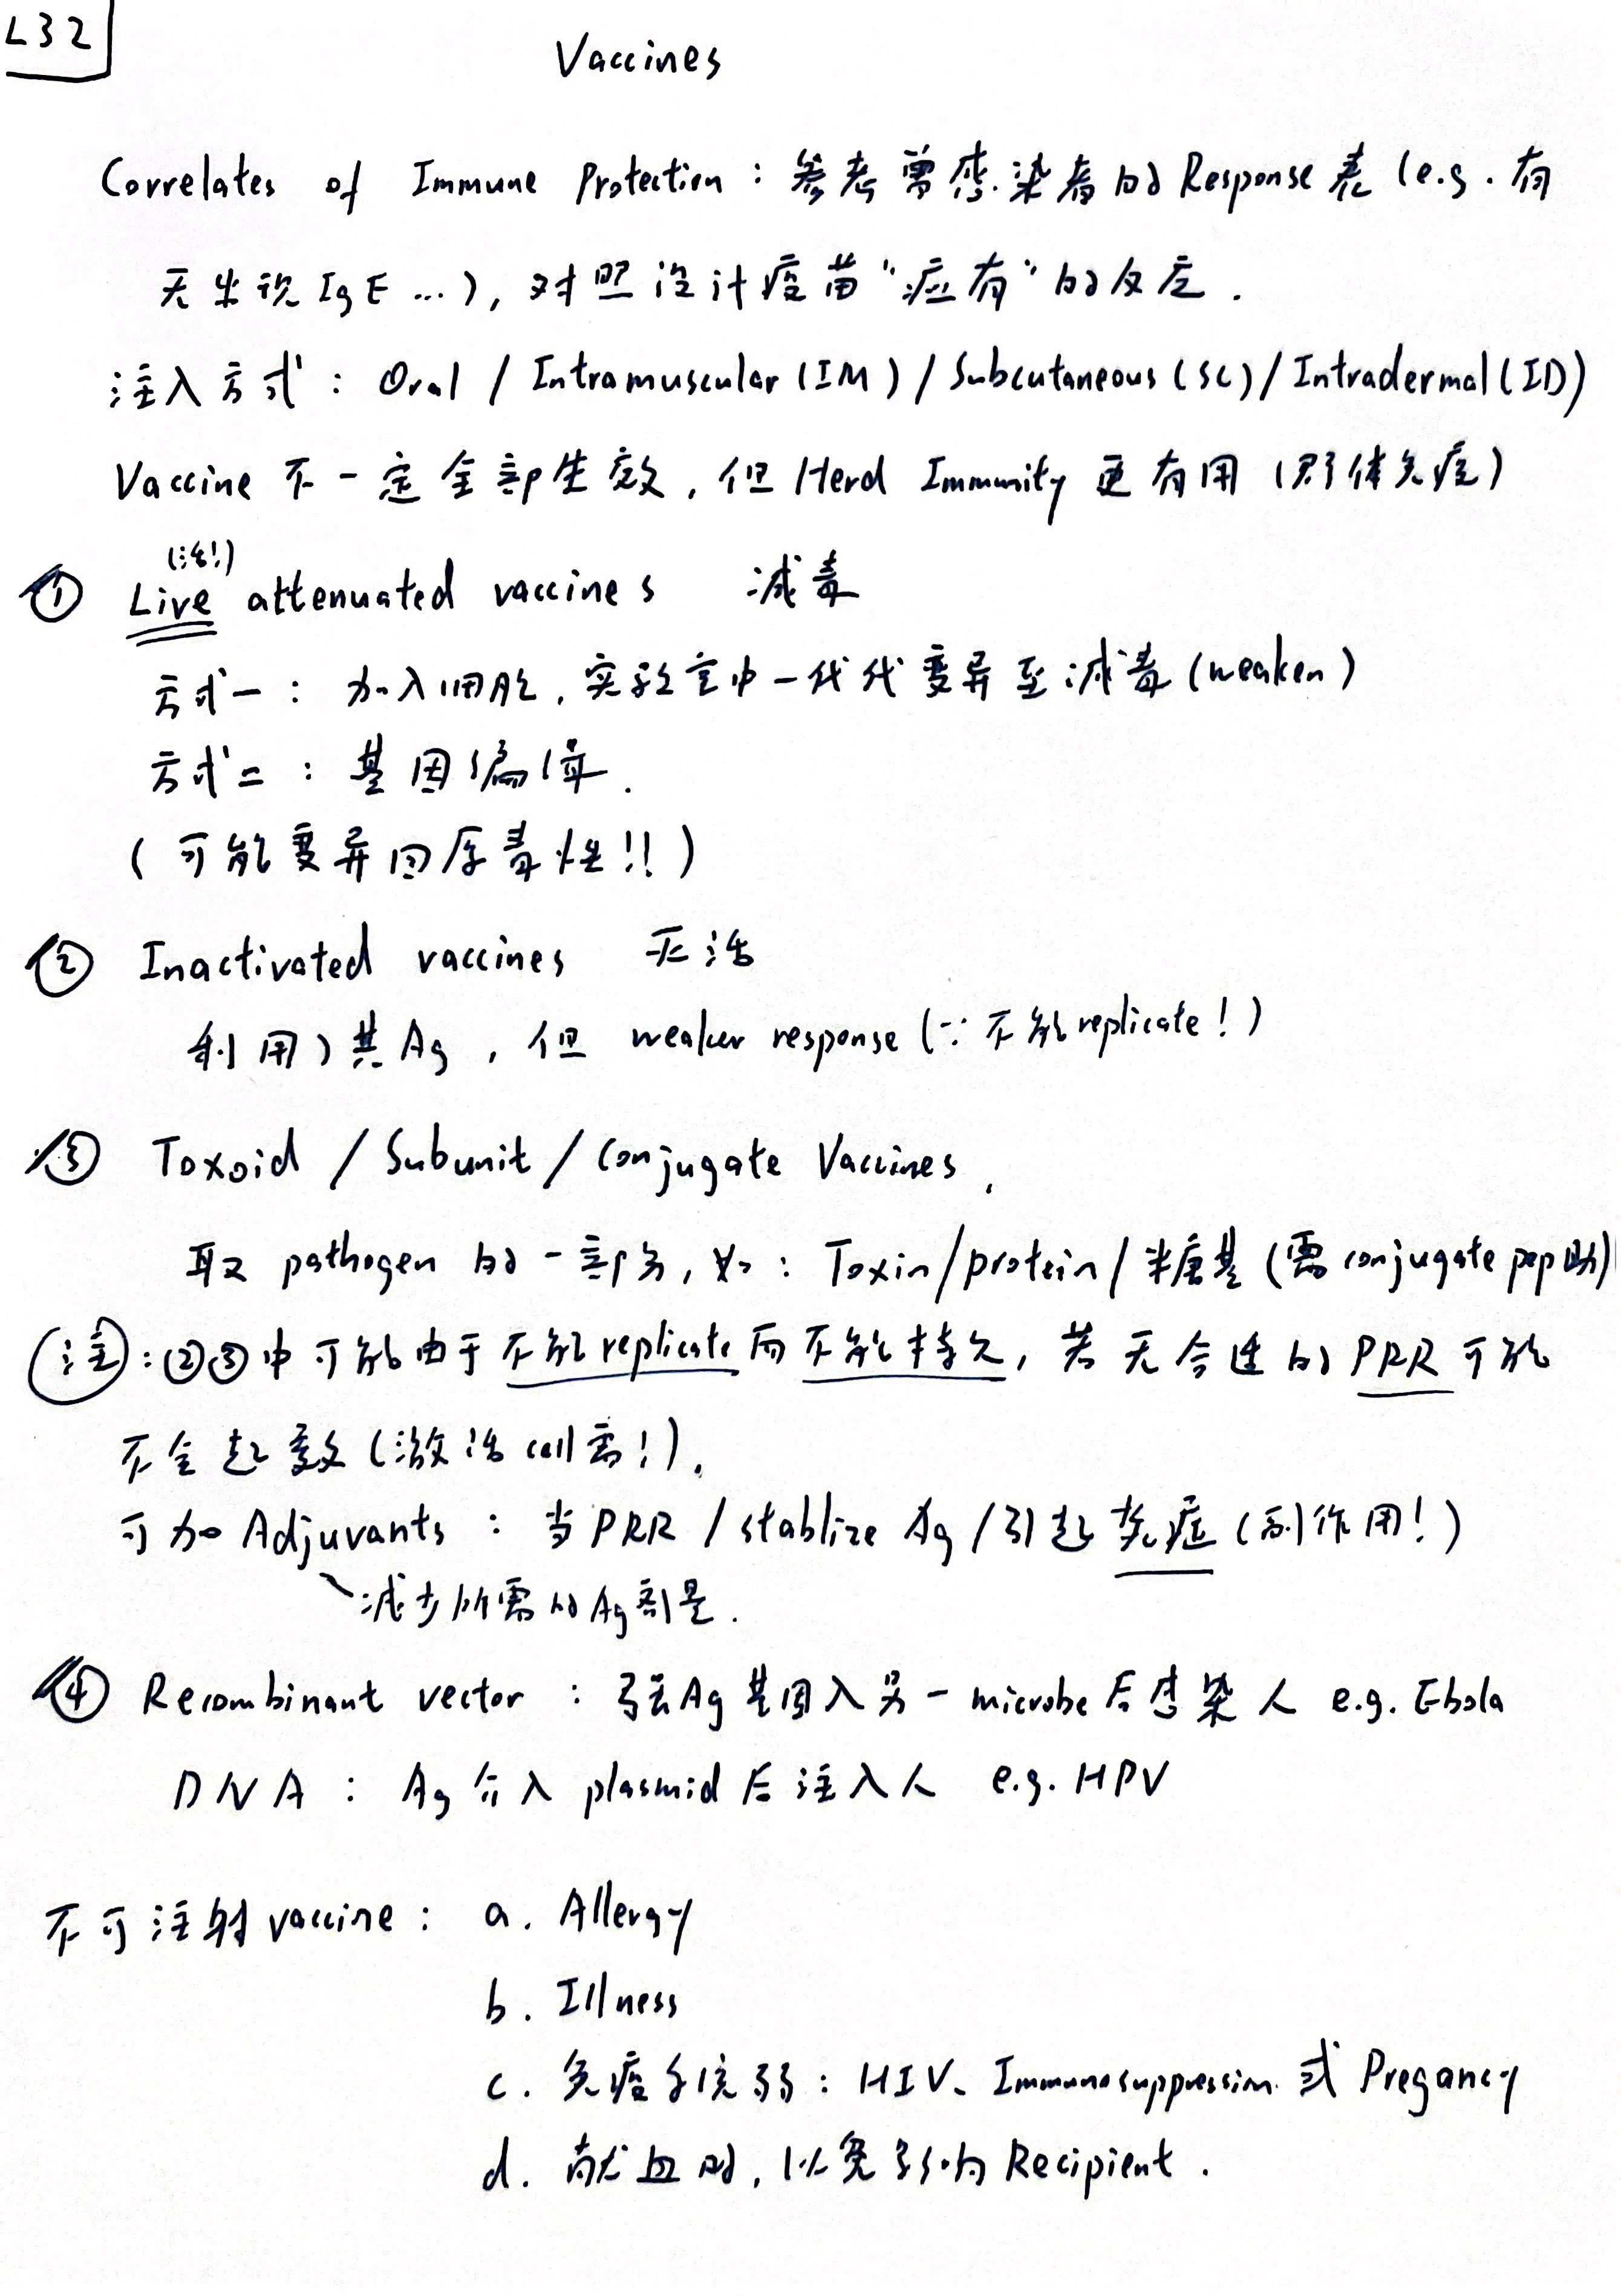 L32
Vaccines
Correlates of Immune Protection : 参考曾感染者的 Response 表 (e.g. 有
无出现 IgE ...), 对照设计疫苗 "应有" 的反应 .
注入方式 : Oral / Intramuscular (IM) / Subcutaneous (SC) / Intradermal (ID)
Vaccine 不一定全部生效 , 但 Herd Immunity 更有用 (群体免疫)
(活!)
① Live attenuated vaccines 减毒
方式一 : 加入细胞 , 实验室中一代代变异至减毒 (weaken)
方式二 : 基因编辑 .
( 可能变异回原毒性!! )
② Inactivated vaccines 灭活
利用其 Ag , 但 weaker response (∵ 不能 replicate ! )
③ Toxoid / Subunit / Conjugate Vaccines .
取 pathogen 的一部分 , 如 : Toxin / protein / 糖基 (需 conjugate pep 助)
注 : ②③ 中可能由于不能 replicate 而不能持久 , 若无合适的 PRR 可能
不会起效 (激活 cell 需!) .
可加 Adjuvants : 当 PRR / stablize Ag / 引起炎症 (副作用!)
减少所需的 Ag 剂量 .
④ Recombinant vector : Ag 基因入另一 microbe 后感染人 e.g. Ebola
DNA : Ag 入 plasmid 后注入人 e.g. HPV
不可注射 vaccine : a. Allergy
b. Illness
c. 免疫系统弱 : HIV、Immunosuppression 或 Pregancy
d. 献血时 , 以免影响 Recipient .